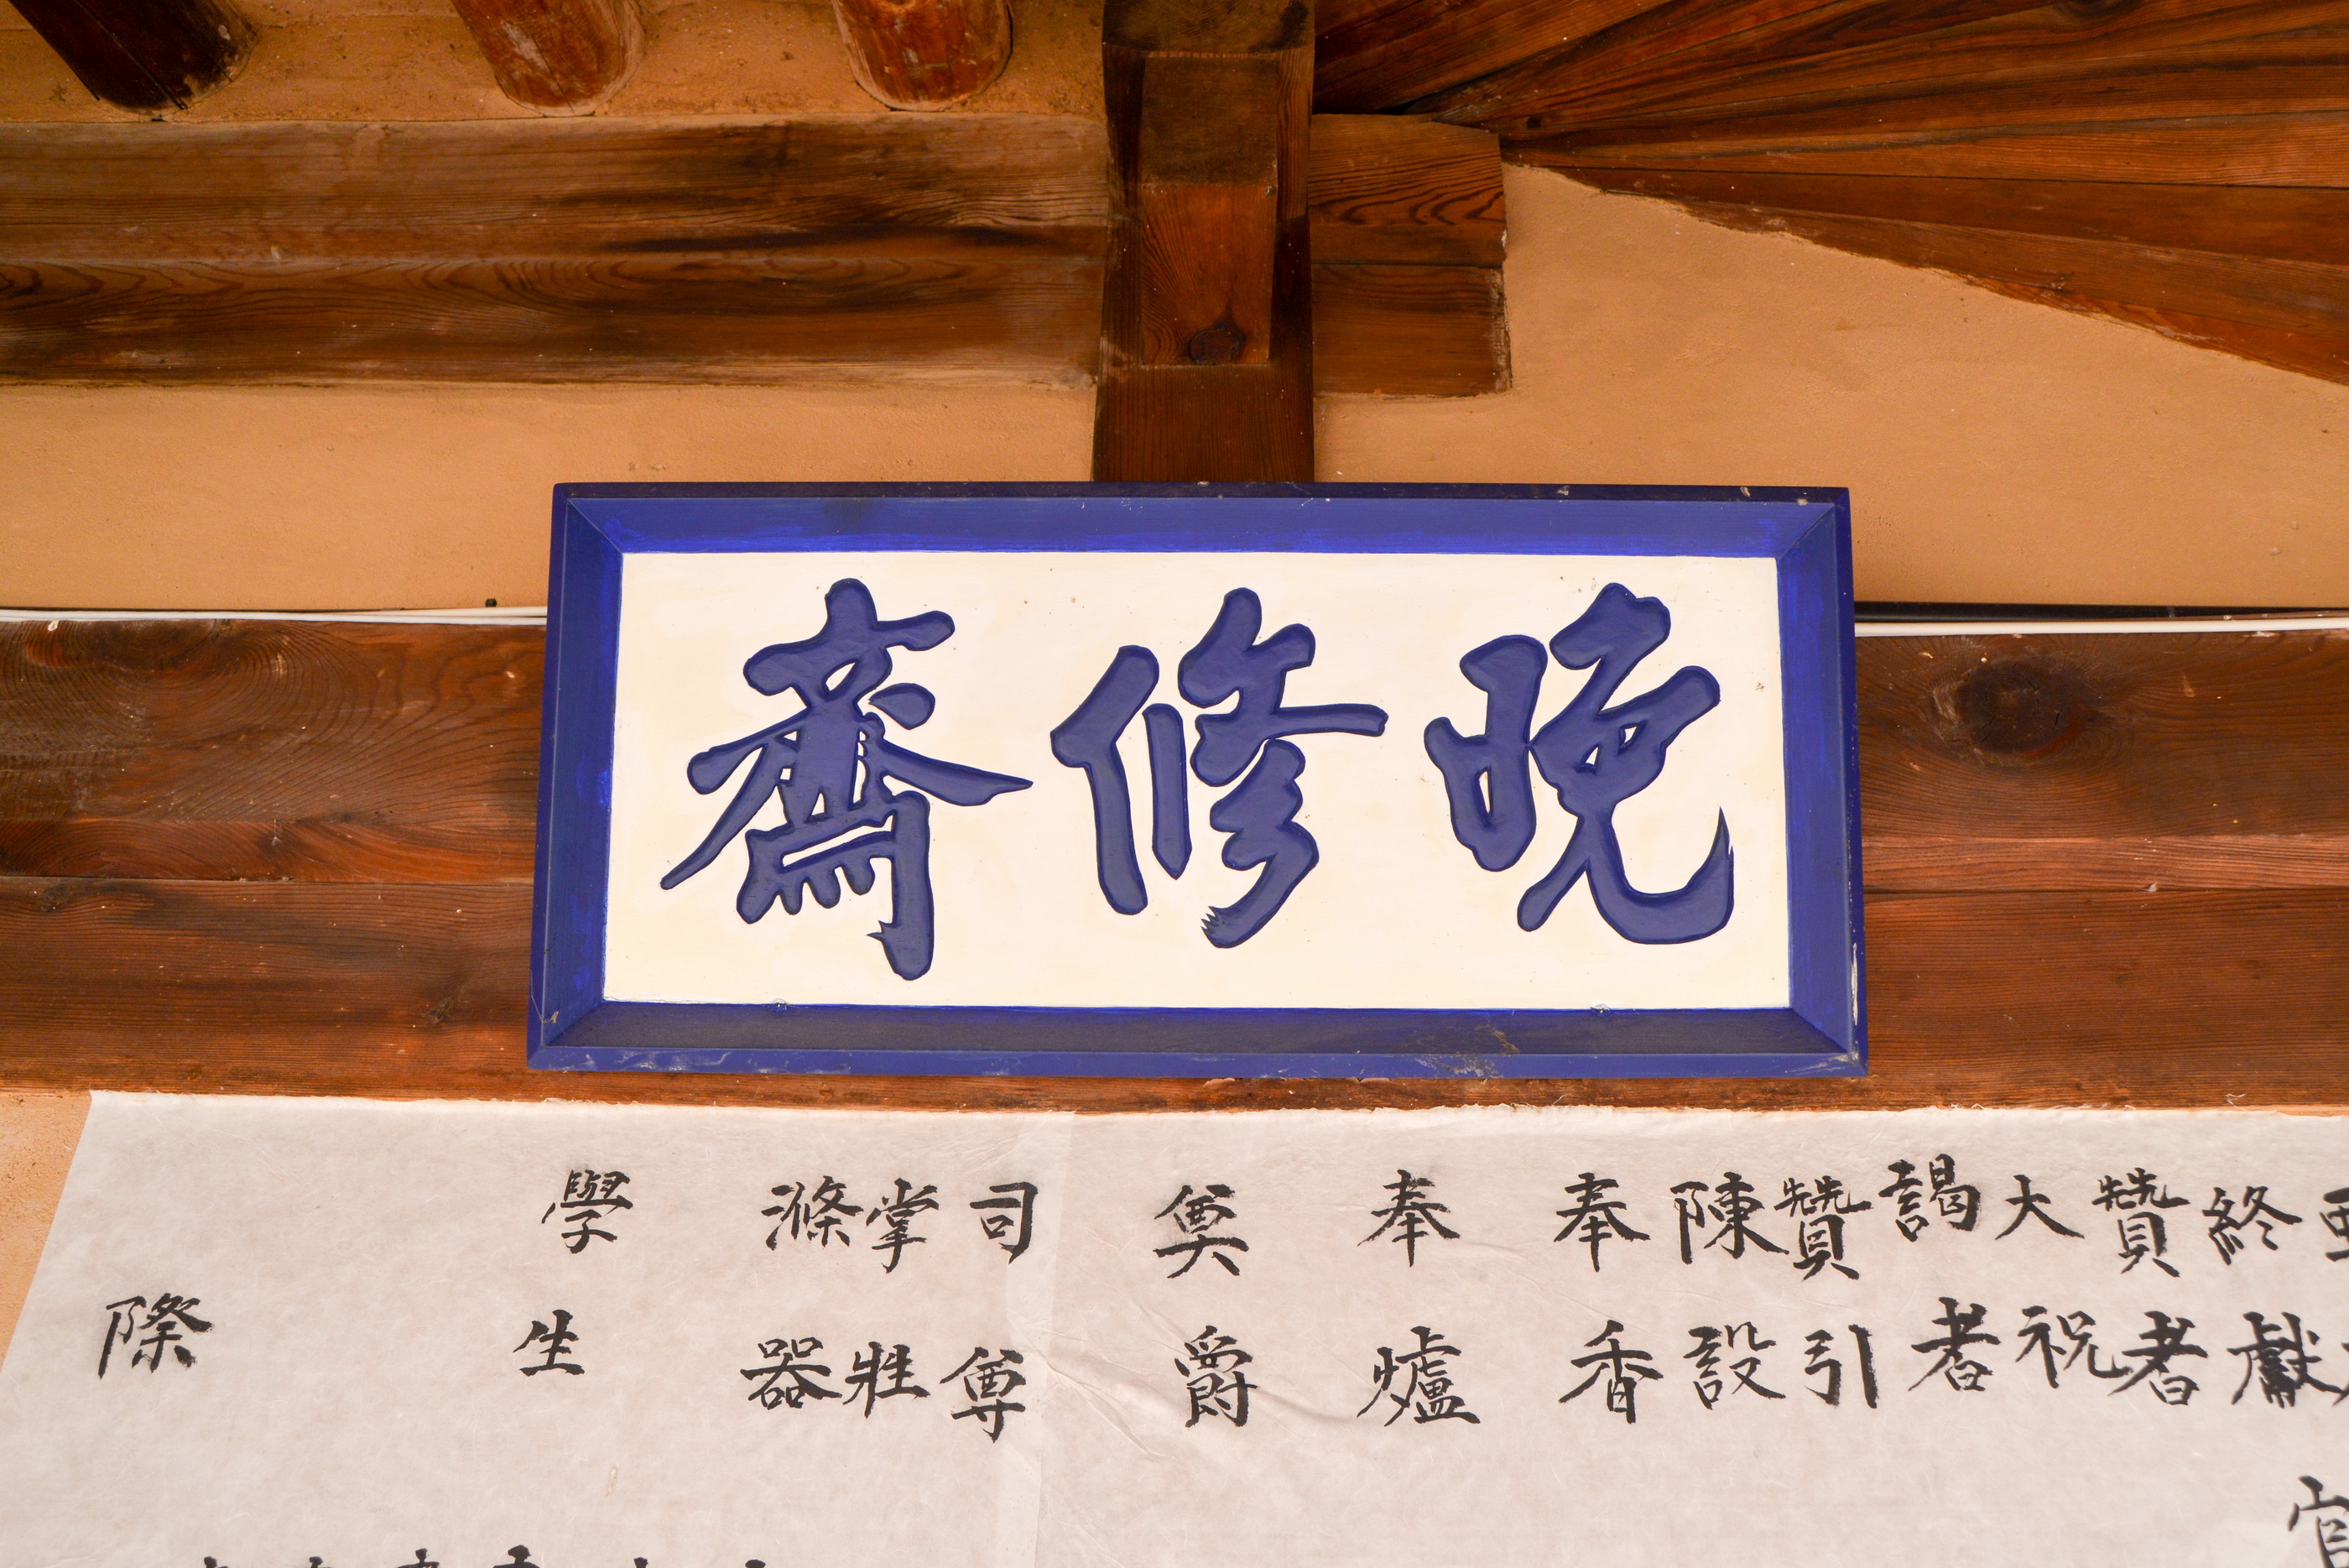 晩修齋
終獻官
贊者
大祝
謁者
贊引
陳設
奉香
奉爐
奠爵
司尊
掌牲
滌器
學生
際